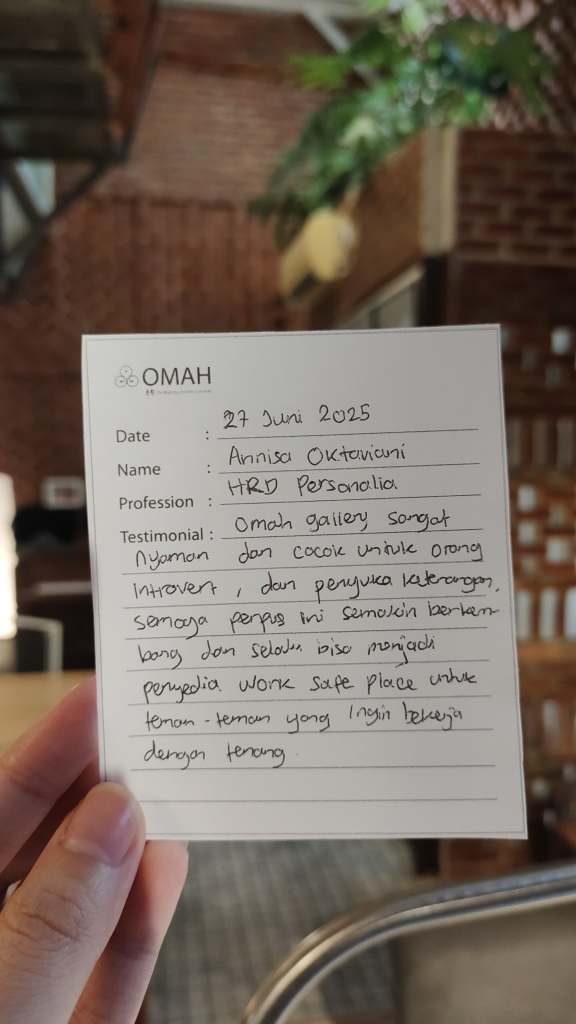 OMAH
Date : 27 Juni 2025
Name : Annisa Oktaviani
Profession : HRD Personalia
Testimonial : Omah gallery sangat
nyaman dan cocok untuk orang
introvert, dan penyuka ketenangan,
semoga perpus ini semakin berkem-
bang dan selalu bisa menjadi
penyedia work safe place untuk
teman-teman yang ingin bekerja
dengan tenang.